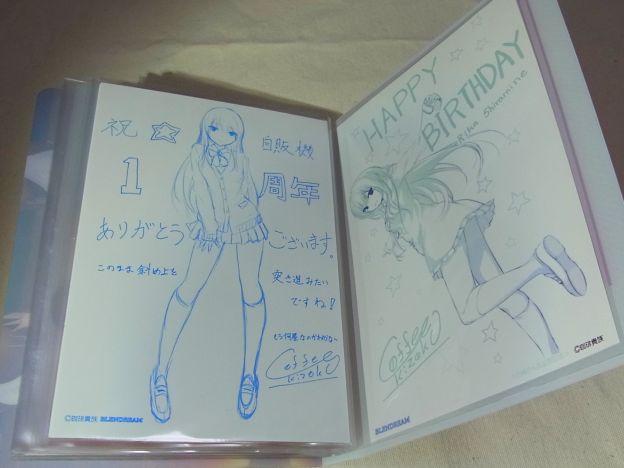 祝☆ 自販機
1 周年
ありがとう ございます。
このまま斜め上を
突き進みたい
ですね!
もう何屋なのかわからない
Coffee
Kizoku
©珈琲貴族 BLENDREAM
HAPPY
BIRTHDAY
Rika Shiromine
Coffee
Kizoku
©珈琲貴族
BLENDREAM